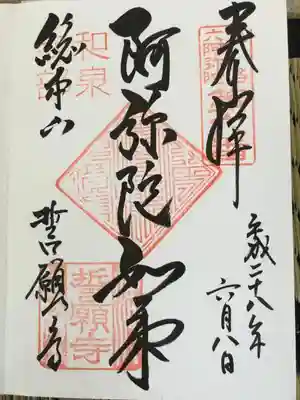 奉拝
平成二十八年
六月八日
阿弥陀如来
和泉
総本山
誓願寺
誓願寺